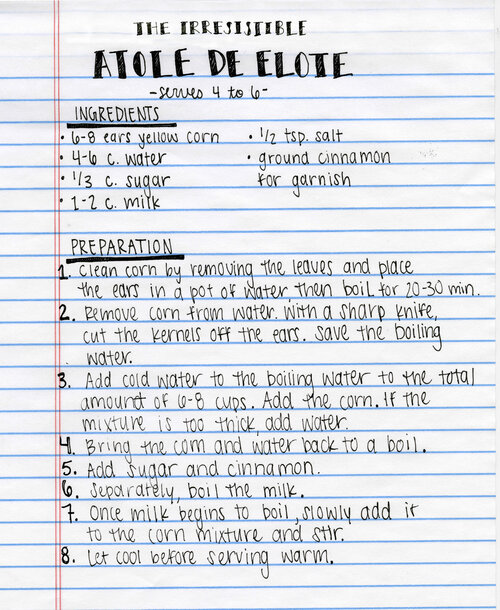 THE IRRESISTIBLE
ATOLE DE ELOTE
-serves 4 to 6-
INGREDIENTS
• 6-8 ears yellow corn
• 4-6 c. water
• 1/3 c. sugar
• 1-2 c. milk
• 1/2 tsp. salt
• ground cinnamon
for garnish
PREPARATION
1. Clean corn by removing the leaves and place
the ears in a pot of water, then boil for 20-30 min.
2. Remove corn from water. With a sharp knife,
cut the kernels off the ears. Save the boiling
water.
3. Add cold water to the boiling water to the total
amount of 6-8 cups. Add the corn. If the
mixture is too thick, add water.
4. Bring the corn and water back to a boil.
5. Add sugar and cinnamon.
6. Separately, boil the milk.
7. Once milk begins to boil, slowly add it
to the corn mixture and stir.
8. Let cool before serving warm.